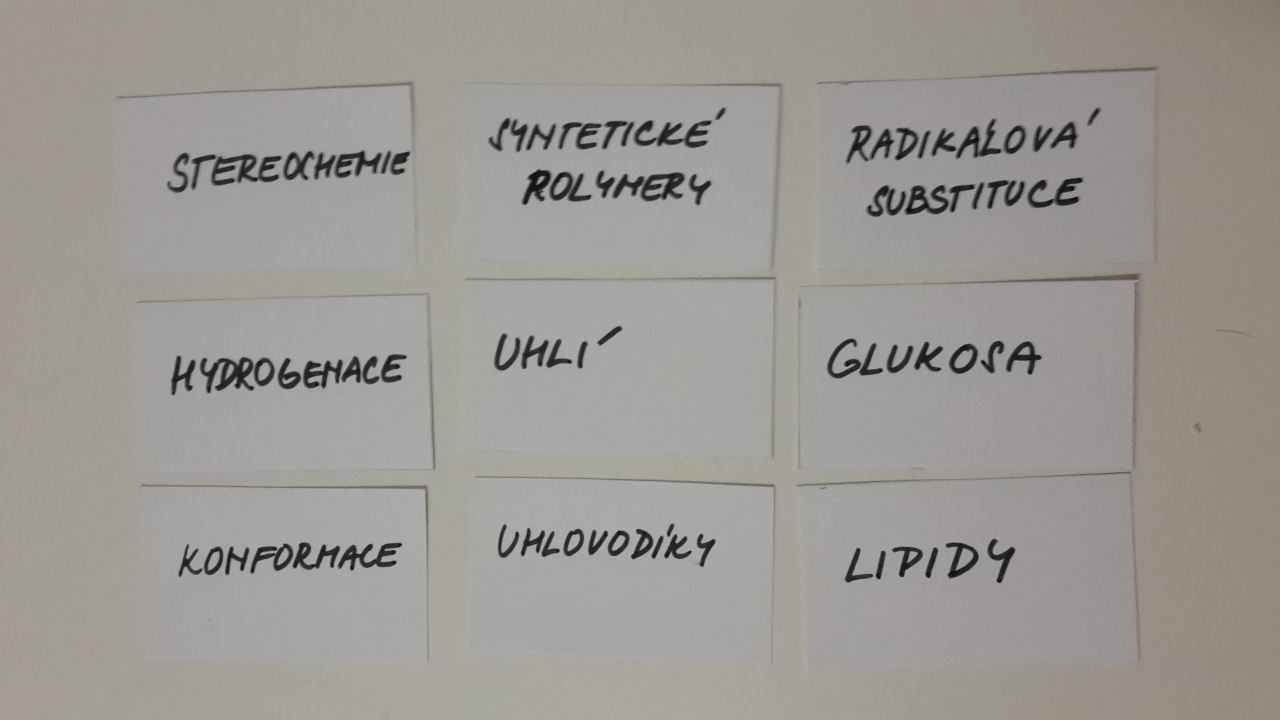 STEREOCHEMIE
SYNTETICKÉ
POLYMERY
RADIKÁLOVÁ
SUBSTITUCE
HYDROGENACE
UHLÍ
GLUKOSA
KONFORMACE
UHLOVODÍKY
LIPIDY